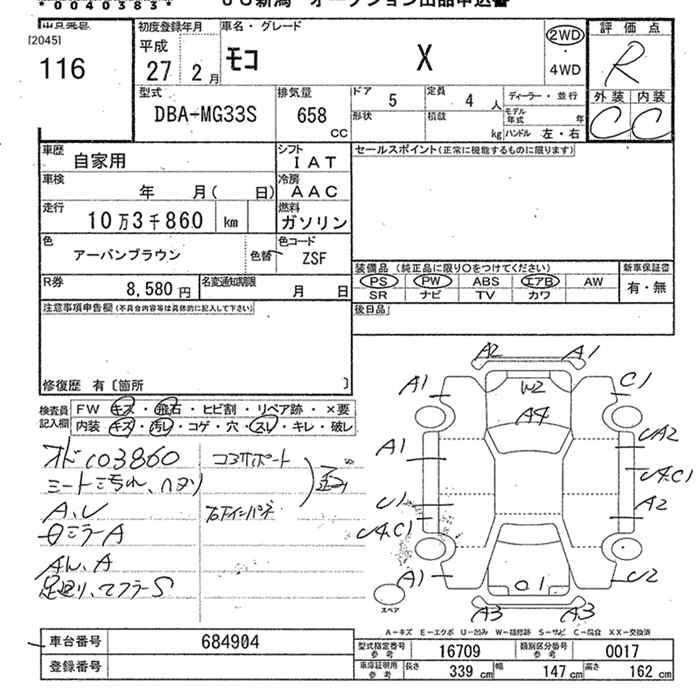 *0040383*
JU新潟 オークション出品申込書
出品番号
[2045]
116
初度登録年月
平成
27 2月
車名・グレード
モコ X
2WD
・
4WD
評価点
R
外装 内装
C C
型式
DBA-MG33S
排気量
658
CC
ドア 5
定員 4 人
ディーラー・並行
形状
積載 kg
モデル年式 年
ハンドル 左・右
車歴
自家用
シフト
IAT
セールスポイント(正常に機能するものに限ります)
車検
年 月( 日)
冷房
AAC
走行
10万3千860 km
燃料
ガソリン
色
アーバンブラウン
色替
色コード
ZSF
装備品 (純正品に限り○をつけてください)
新車保証書
PS PW ABS エアB AW
SR ナビ TV カワ
有・無
R券
8,580円
名変通知期限
月 日
後日品
注意事項申告欄(不具合内容等は具体的に記入して下さい)
修復歴 有〔箇所 〕
検査員
記入欄
FW キズ・飛石・ヒビ割・リペア跡・×要
内装・キズ・汚レ・コゲ・穴・スレ・キレ・破レ
オド103860
シート汚れ、ヘタリ
A、U
ミラーA
A
足廻り、マフラーS
コアサポート
右インパネ
A2 A1
A1 W2 C1
A4
A1 UA2
U4.C1
U1 A2
U4.C1
A1 C1 U2
A3 A3
スペア
A-キズ E-エクボ U-凹み W-補修跡 S-サビ C-腐食 XX-交換済
車台番号 684904
登録番号
型式指定番号
参考
16709
類別区分番号
参考
0017
車庫証明用
参考
長さ 339 cm 幅 147 cm 高さ 162 cm